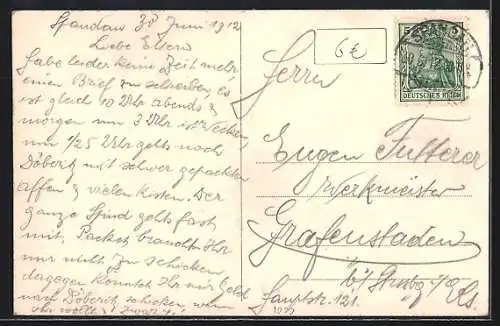 Spandau 30 Juni 1912
Liebe Eltern
Habe leider keine Zeit mehr
einen Brief zu schreiben, es
ist gleich 10 Uhr abends &
morgen um 3 Uhr ist Wecken,
um 1/25 Uhr gehts nach
Döberitz mit schwer gepackten
Affen & vielen Kisten. Der
ganze Spind geht fast
mit. Packet braucht Ihr
mir nicht zu schicken
dagegen könntet Ihr mir Geld
nach Döberitz schicken wenn
Ihr wollt
6€
SPANDAU
5
DEUTSCHES REICH
Herrn
Eugen Futterer
Werkmeister
Grafenstaden
b/ Strbg i/Els.
Hauptstr. 121.